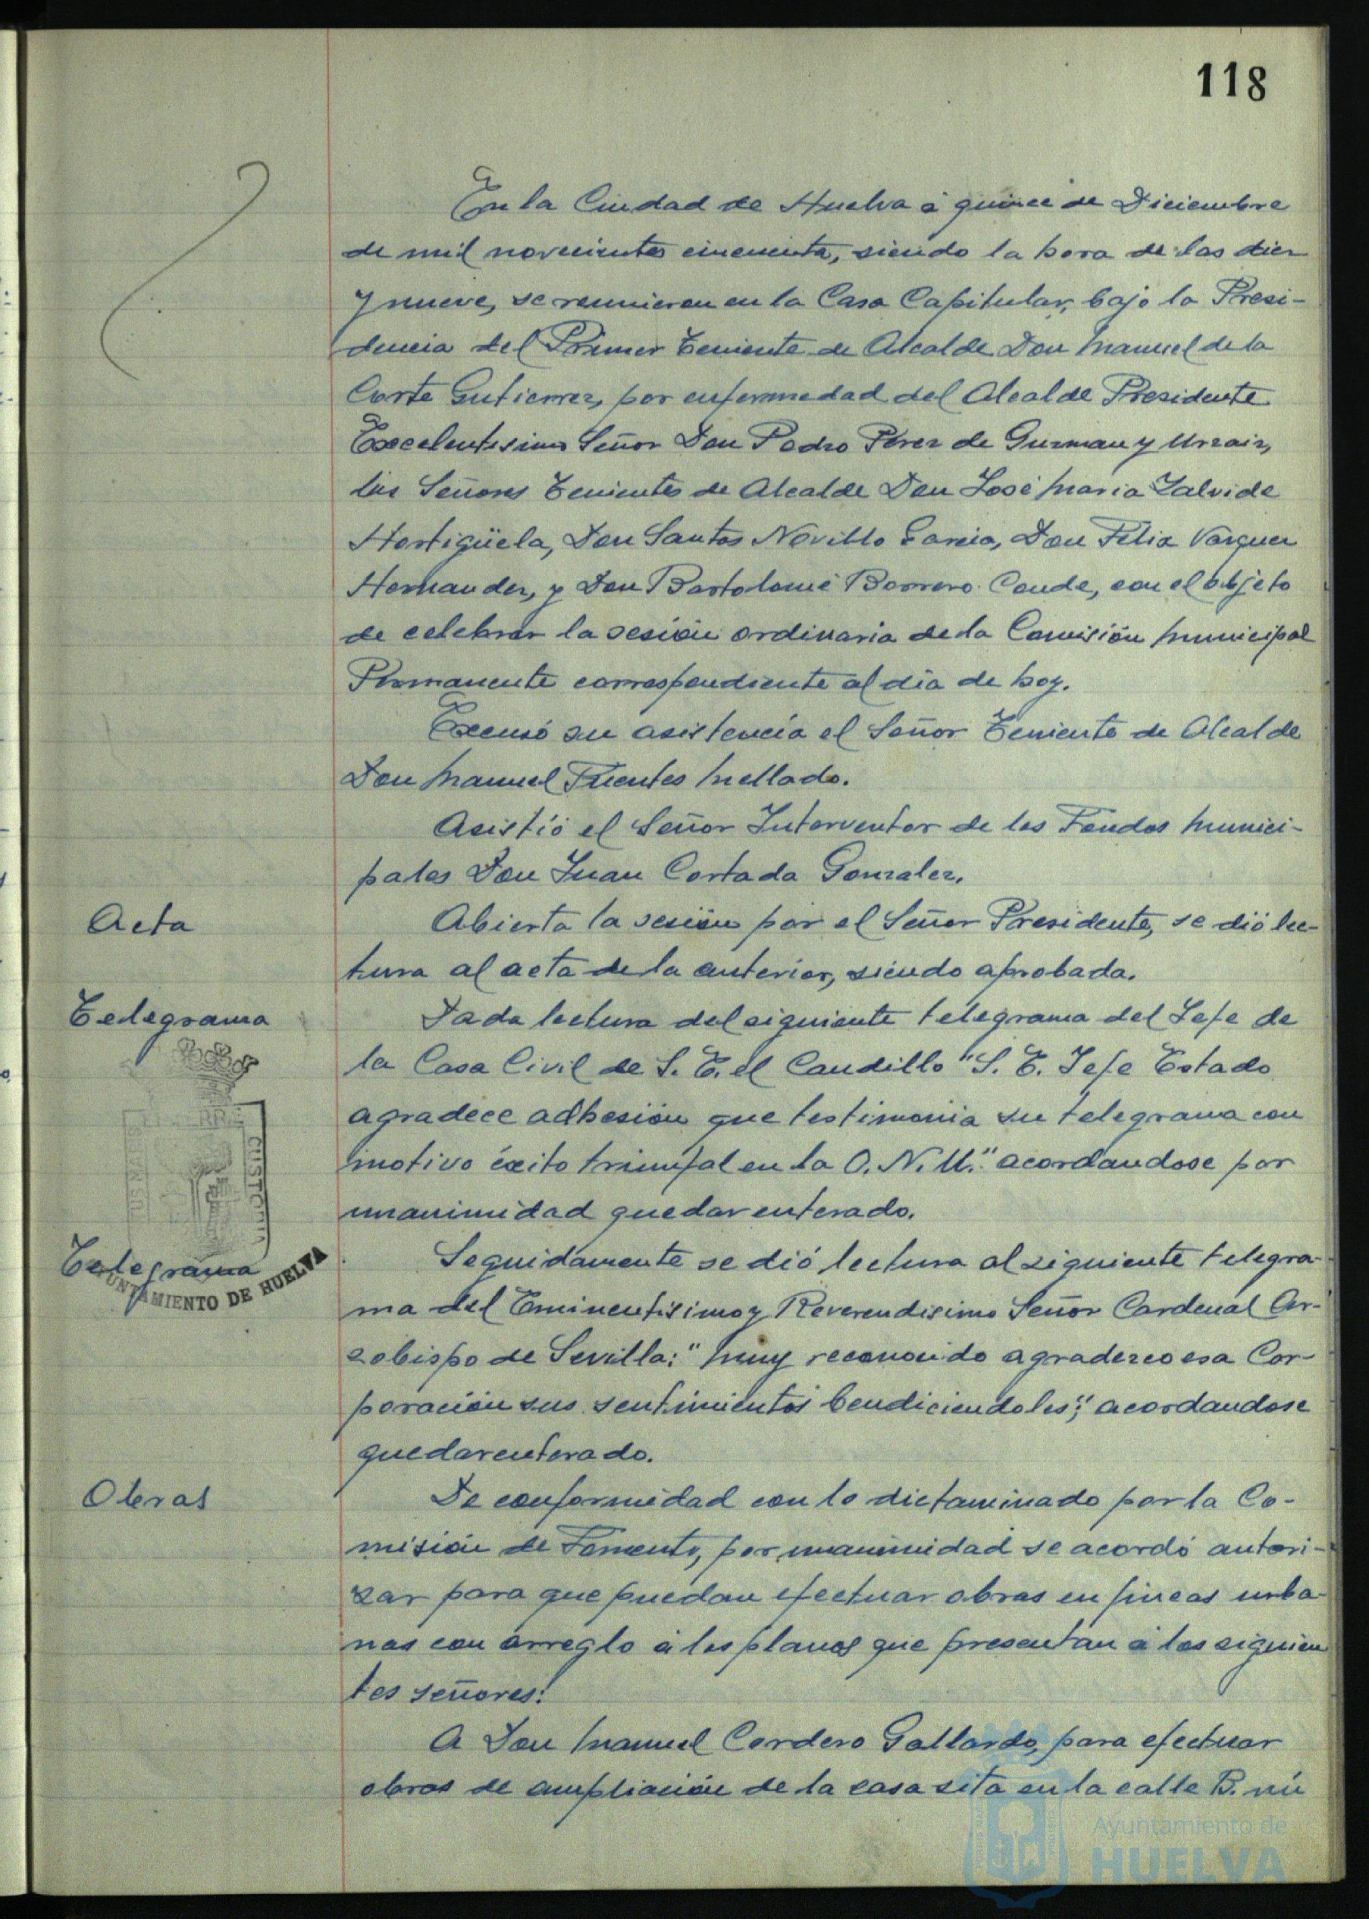 118
En la Ciudad de Huelva á quince de Diciembre
de mil novecientos cincuenta, siendo la hora de las diez
y nueve, se reunieron en la Casa Capitular, bajo la Presi-
dencia del Primer Teniente de Alcalde Don Manuel de la
Corte Gutierrez, por enfermedad del Alcalde Presidente
Excelentisimo Señor Don Pedro Pérez de Guzman y Urzaiz,
los Señores Tenientes de Alcalde Don José Maria Zalvide
Hortigüela, Don Santos Novillo Garcia, Don Félix Vazquez
Hernandez, y Don Bartolomé Borrero Conde, con el objeto
de celebrar la sesión ordinaria de la Comisión Municipal
Permanente correspondiente al dia de hoy.
Excusó su asistencia el Señor Teniente de Alcalde
Don Manuel Fuentes Mellado.
Asistió el Señor Interventor de los Fondos Munici-
pales Don Juan Cortada Gonzalez.
Acta
Abierta la sesión por el Señor Presidente, se dió lec-
tura al acta de la anterior, siendo aprobada.
Telegrama
Dada lectura del siguiente telegrama del Jefe de
la Casa Civil de S. E. el Caudillo "S. E. Jefe Estado
agradece adhesión que testimonia su telegrama con
motivo éxito triunfal en la O. N. U." acordandose por
unanimidad quedar enterado.
PORTUS MARIS
TERRE
CUSTODIA
AYUNTAMIENTO DE HUELVA
Telegrama
Seguidamente se dió lectura al siguiente telegra-
ma del Eminentisimo y Reverendisimo Señor Cardenal Ar-
zobispo de Sevilla: "Muy reconocido agradezco esa Cor-
poración sus sentimientos bendiciendoles"; acordandose
quedar enterado.
Obras
De conformidad con lo dictaminado por la Co-
misión de Fomento, por unanimidad se acordó autori-
zar para que puedan efectuar obras en fincas urba-
nas con arreglo á los planos que presentan á los siguien
tes señores:
A Don Manuel Cordero Gallardo, para efectuar
obras de ampliación de la casa sita en la calle B. nú
Ayuntamiento de
HUELVA